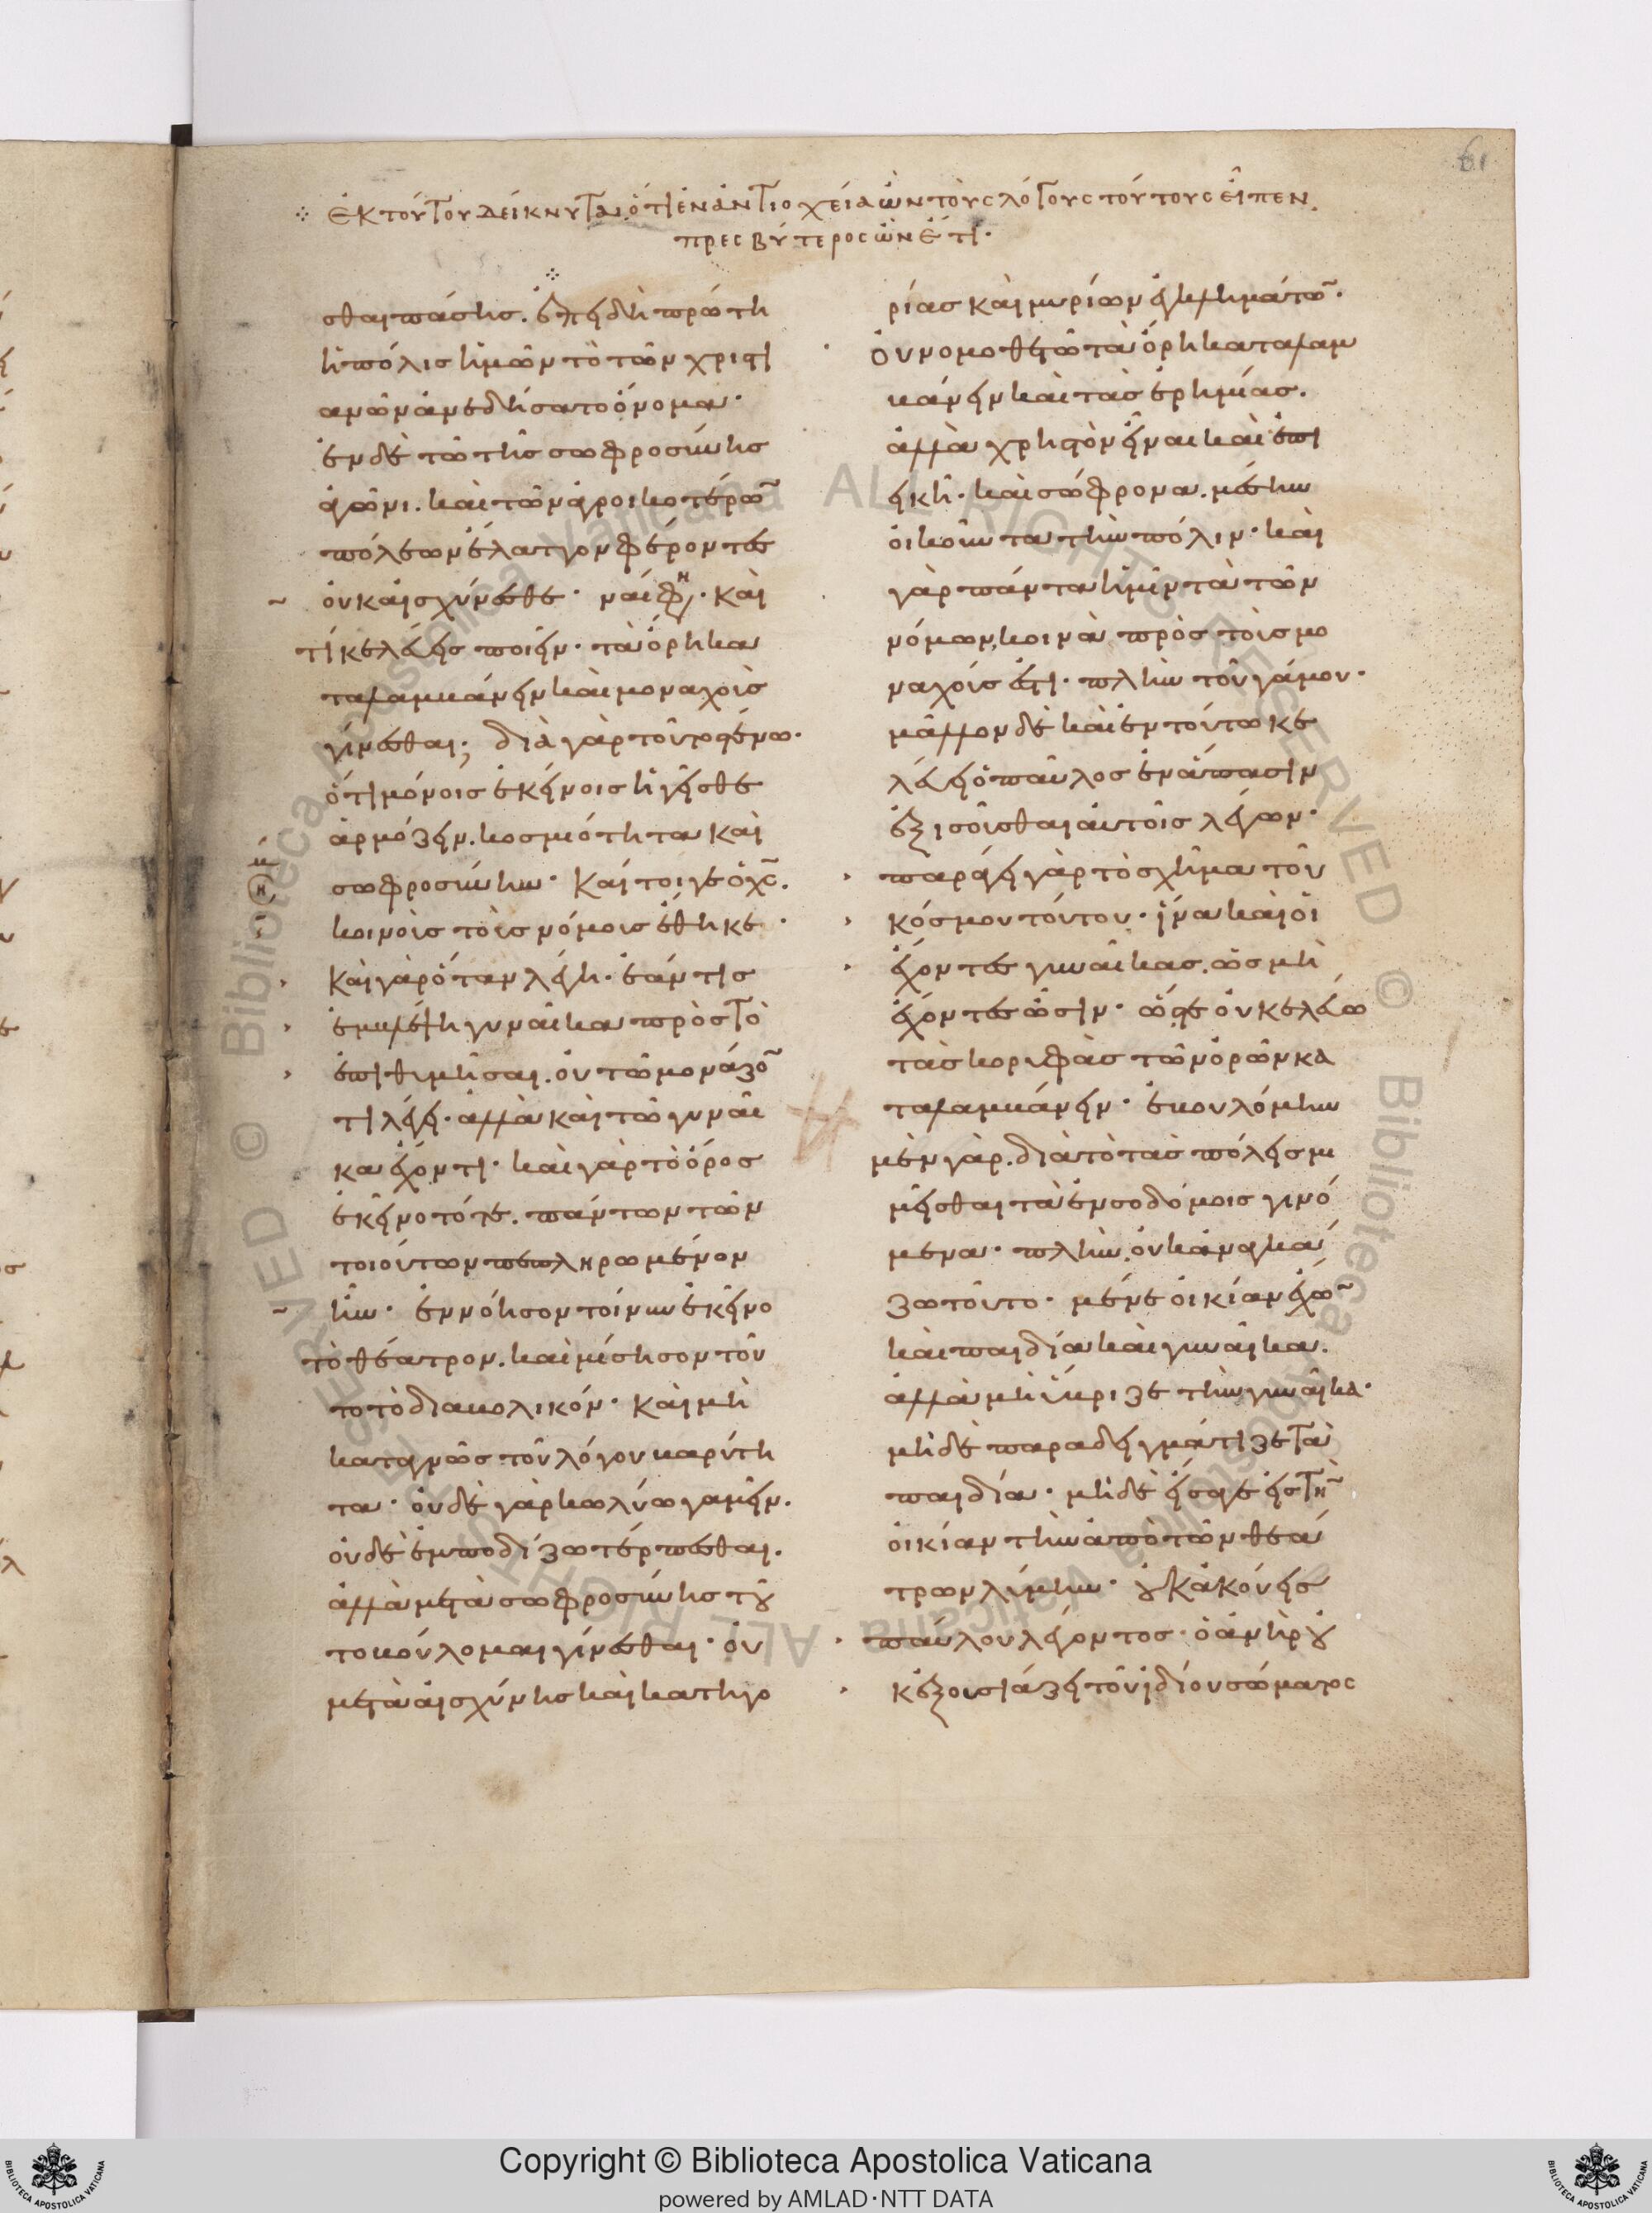 61
ἐκ τούτου δείκνυται ὅτι ἐν ἀντιοχεία ὢν τοὺς λόγους τούτους εἶπεν
πρεσβύτερος ὢν ἔτι·
σθαι πάσης. ἐπειδὴ πρώτη
ἡ πόλις ἡμῶν τὸ τῶν χριστι
ανῶν ἀνεδήσατο ὄνομα·
ἐν δὲ τῶ τῆς σωφροσύνης
ἀγῶνι. καὶ τῶν ἀγροικοτέρω̅
πόλεων ἔλαττον φέροντες
οὐκ αἰσχύνεσθε· ναί φη(ν)· καὶ
τί κελεύεις ποιεῖν· τὰ ὄρη κα
ταλαμβάνειν καὶ μοναχοὶς
γίνεσθαι; διὰ γὰρ τοῦτο στένω·
ὅτι μόνοις ἐκείνοις ἡγεῖσθε
ἁρμόζειν. κοσμιότητα καὶ
σωφροσύνην· καίτοιγε ὁ χς̅.
κοινοὺς τοὺς νόμους ἔθηκε·
καὶ γὰρ ὅταν λέγη· ἐάν τις
ἐμβλέψη γυναῖκα πρὸς τὸ
ἐπιθυμῆσαι. οὐ τῶ μονάζο̅
τι λέγει. ἀλλὰ καὶ τῶ γυναῖ
κα ἔχοντι· καὶ γὰρ τὸ ὄρος
ἐκεῖνο τότε. πάντων τῶν
τοιούτων πεπληρωμένον
ἦν· ἐννόησον τοίνυν ἐκεῖνο
τὸ θέατρον. καὶ μίσησον τοῦ
το τὸ διαβολικόν· καὶ μὴ
καταγνῶς τοῦ λόγου βαρύτη
τα· οὐδὲ γὰρ κωλύω γαμεῖν.
οὐδὲ ἐμποδίζω τέρπεσθαι.
ἀλλὰ μετὰ σωφροσύνης τοῦ
το βούλομαι γίνεσθαι· οὐ
μετὰ αἰσχύνης καὶ κατηγο
ρίας καὶ μυρίων ἐγκλημάτω̅·
οὐ νομοθετῶ τὰ ὄρη καταλαμ
βάνειν καὶ τὰς ἐρημίας.
ἀλλὰ χρηστὸν εἶναι καὶ ἐπι
εικῆ· καὶ σώφρονα. μέσην
οἰκοῦντα τὴν πόλιν· καὶ
γὰρ πάντα ἡμῖν τὰ τῶν
νόμων, κοινὰ πρὸς τοὺς μο
ναχούς ἐστι. πλὴν τοῦ γάμου·
μᾶλλον δὲ καὶ ἐν τούτω κε
λεύει ὁ παῦλος ἐν ἅπασιν
ἐξισοῦσθαι αὐτοῖς λέγων·
παράγει γὰρ τὸ σχῆμα τοῦ
κόσμου τούτου· ἵνα καὶ οἱ
ἔχοντες γυναῖκας. ὡς μὴ
ἔχοντες ὦσιν· ὥστε οὐ κελεύω
τὰς κορυφὰς τῶν ὀρῶν κα
ταλαμβάνειν· ἐβουλόμην
μὲν γὰρ. διὰ τὸ τὰς πόλεις μι
μεῖσθαι τὰ ἐν σοδόμοις γινό
μενα· πλὴν οὐκ ἀναγκά
ζω τοῦτο· μένε οἰκίαν ἔχω̅
καὶ παιδία καὶ γυναῖκα.
ἀλλὰ μὴ ὕβριζε τὴν γυναῖκα·
μὴ δὲ παραδειγμάτιζε τὰ
παιδία· μὴ δὲ εἴσαγε εἰς τὴ̅
οἰκίαν τὴν ἀπὸ τῶν θεά
τρων λύμην· οὐκ ἀκούεις
παύλου λέγοντος· ὁ ἀνὴρ οὐ
κ ἐξουσιάζει τοῦ ἰδίου σώματος
Copyright © Biblioteca Apostolica Vaticana
powered by AMLAD·NTT DATA